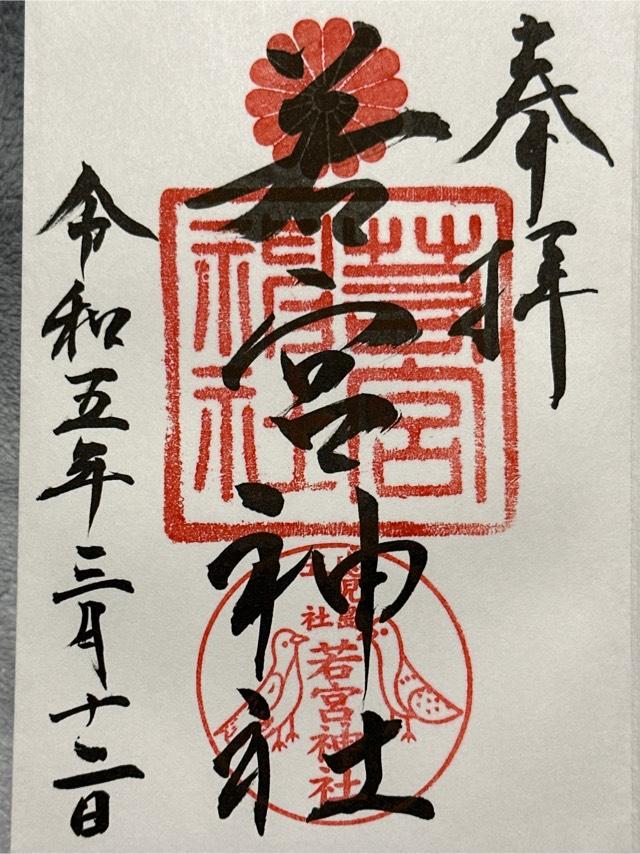 奉拝
若宮神社
令和五年三月十二日
若宮
神社
鹿児島
五社
若宮神社